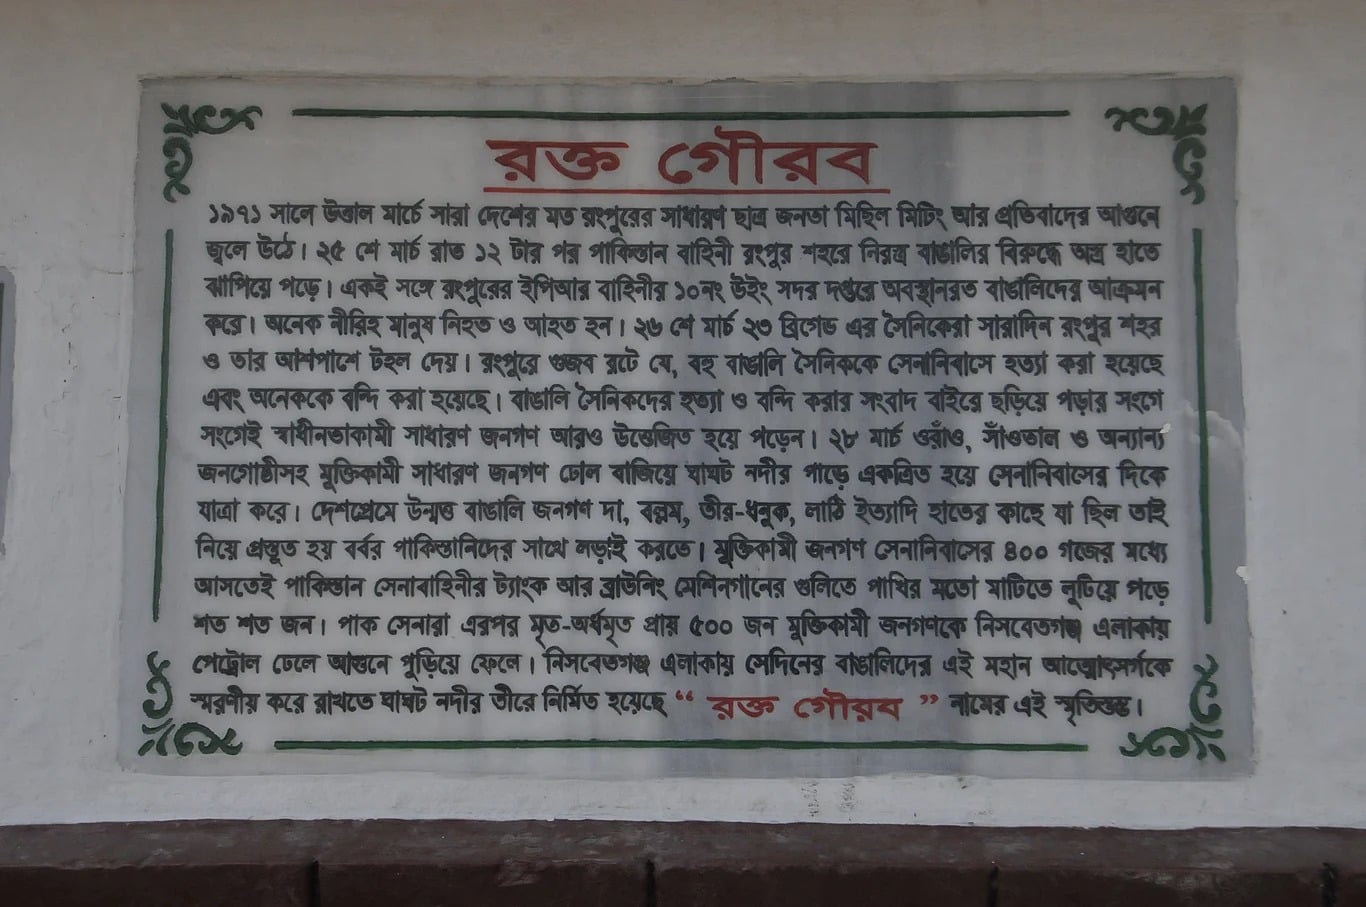 রক্ত গৌরব
১৯৭১ সালে উত্তাল মার্চে সারা দেশের মত রংপুরের সাধারণ ছাত্র জনতা মিছিল মিটিং আর প্রতিবাদের আগুনে
জ্বলে উঠে। ২৫ শে মার্চ রাত ১২ টার পর পাকিস্তান বাহিনী রংপুর শহরে নিরস্ত্র বাঙালির বিরুদ্ধে অস্ত্র হাতে
ঝাঁপিয়ে পড়ে। একই সঙ্গে রংপুরের ইপিআর বাহিনীর ১০নং উইং সদর দপ্তরে অবস্থানরত বাঙালিদের আক্রমন
করে। অনেক নীরিহ মানুষ নিহত ও আহত হন। ২৬ শে মার্চ ২৩ ব্রিগেড এর সৈনিকেরা সারাদিন রংপুর শহর
ও তার আশপাশে টহল দেয়। রংপুরে গুজব রটে যে, বহু বাঙালি সৈনিককে সেনানিবাসে হত্যা করা হয়েছে
এবং অনেককে বন্দি করা হয়েছে। বাঙালি সৈনিকদের হত্যা ও বন্দি করার সংবাদ বাইরে ছড়িয়ে পড়ার সংগে
সংগেই স্বাধীনতাকামী সাধারণ জনগণ আরও উত্তেজিত হয়ে পড়েন। ২৮ মার্চ ওরাঁও, সাঁওতাল ও অন্যান্য
জনগোষ্ঠীসহ মুক্তিকামী সাধারণ জনগণ ঢোল বাজিয়ে ঘাঘট নদীর পাড়ে একত্রিত হয়ে সেনানিবাসের দিকে
যাত্রা করে। দেশপ্রেমে উন্মত্ত বাঙালি জনগণ দা, বল্লম, তীর-ধনুক, লাঠি ইত্যাদি হাতের কাছে যা ছিল তাই
নিয়ে প্রস্তুত হয় বর্বর পাকিস্তানিদের সাথে লড়াই করতে। মুক্তিকামী জনগণ সেনানিবাসের ৪০০ গজের মধ্যে
আসতেই পাকিস্তান সেনাবাহিনীর ট্যাংক আর ব্রাউনিং মেশিনগানের গুলিতে পাখির মতো মাটিতে লুটিয়ে পড়ে
শত শত জন। পাক সেনারা এরপর মৃত-অর্ধমৃত প্রায় ৫০০ জন মুক্তিকামী জনগণকে নিসবেতগঞ্জ এলাকায়
পেট্রোল ঢেলে আগুনে পুড়িয়ে ফেলে। নিসবেতগঞ্জ এলাকায় সেদিনের বাঙালিদের এই মহান আত্মোৎসর্গকে
স্মরণীয় করে রাখতে ঘাঘট নদীর তীরে নির্মিত হয়েছে “ রক্ত গৌরব ” নামের এই স্মৃতিস্তম্ভ।